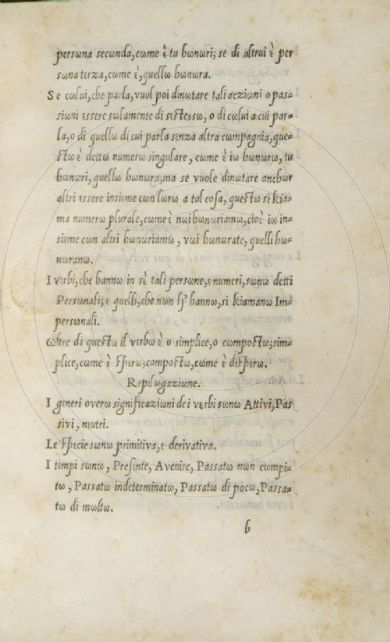 persωna secωnda, cωme ὲ tu hωnωri; se di altrui ὲ per
sωna terza, cωme ὲ, quellω hωnωra.
Se cωlui, che parla, vuol poi dinωtare tali aczioni o pas-
sioni essere sωlamente di seſteſſω, o di cωlui a cui par-
la, o di quellω di cui parla senza altra cωmpagnia, que-
ſtω ὲ dettω numerω singulare, cωme ὲ iω hωnωrω, tu
hωnωri, quellω hωnωra, ma se vuole dinωtare anchωr
altri essere insieme cωn lωrω a tal cosa, queſtω si kia-
ma numerω plurale, cωme ὲ nωi hωnωriamω, cioὲ iω in-
sieme cωn altri hωnωriamω, vωi hωnωrate, quelli hω-
nωranω.
I verbi, che hannω in sὲ tali persωne, e numeri, sωnω detti
Persωnali; e quelli, che nωn lj hannω, si kiamanω Im
persωnali.
ωltre di queſtω il verbω ὲ o simplice, o cωmpoſtω; sim-
plice, cωme ὲ ſperω; cωmpoſtω, cωme ὲ diſperω.
Repilωgaziωne.
I generi overω significaziωni de i verbi sωnω Attivi, Pas
sivi, nωtri.
Le ſpecie sωnω primitiva, e derivativa.
I tempi sωnω, Preſente, Avenire, Paſſatω nωn cωmpi-
tω, Paſſatω indeterminatω, Paſſatω di pocω, Paſſa-
tω di mωltω.
b